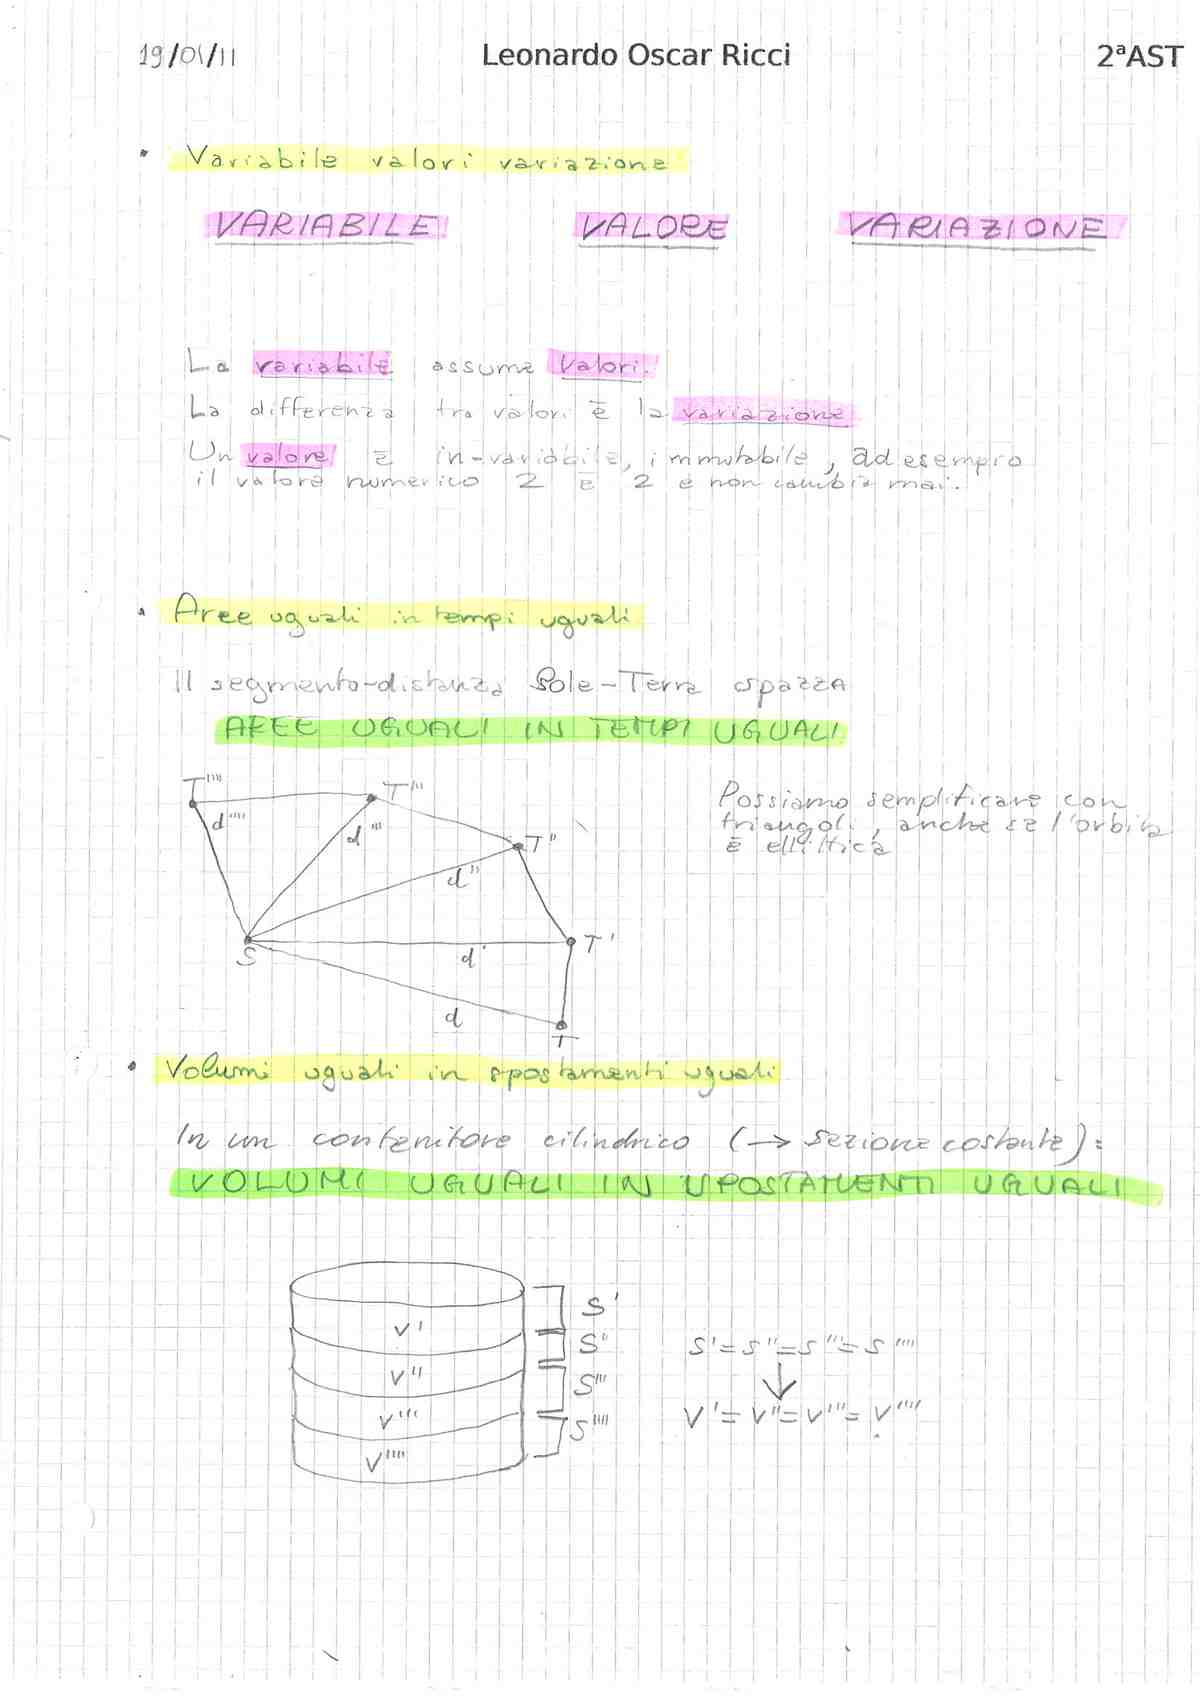 19/01/11 Leonardo Oscar Ricci 2ªAST
• Variabile valori variazione
VARIABILE VALORE VARIAZIONE
La variabile assume valori.
La differenza tra valori è la variazione
Un valore è in-variabile, immutabile, ad esempio
il valore numerico 2 è 2 e non cambia mai.
• Aree uguali in tempi uguali
Il segmento-distanza Sole-Terra spazza
AREE UGUALI IN TEMPI UGUALI
Possiamo semplificare con
triangoli, anche se l'orbita
è ellittica
T'''' T'''
d'''' d''' T''
d''
S d' T'
d
T
• Volumi uguali in spostamenti uguali
In un contenitore cilindrico (→ sezione costante):
VOLUMI UGUALI IN SPOSTAMENTI UGUALI
V' S'
V'' S''
V''' S'''
V'''' S''''
S'=S''=S'''=S''''
↓
V'=V''=V'''=V''''